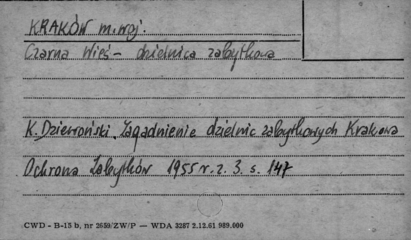 KRAKÓW m. woj.
Czarna Wieś – dzielnica zabytkowa
K. Dziewoński, Zagadnienie dzielnic zabytkowych Krakowa
Ochrona Zabytków 1955 r. z. 3. s. 147
CWD - B-15 b, nr 2659/ZW/P — WDA 3287 2.12.61 989.000